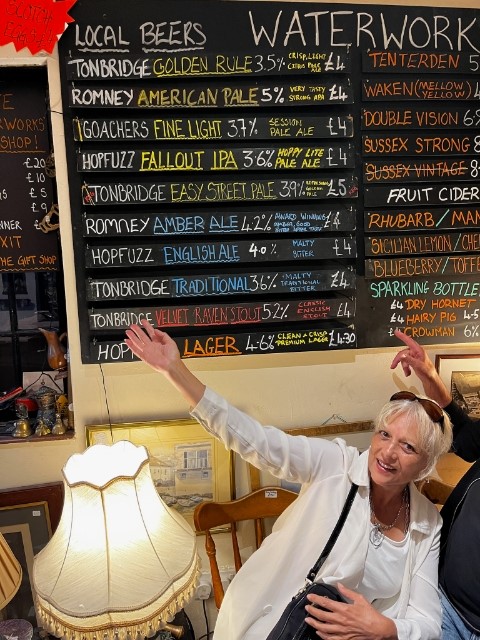 LOCAL BEERS
WATERWORK
TONBRIDGE GOLDEN RULE 3.5% CRISP, LIGHT CITRUS PALE ALE £4
ROMNEY AMERICAN PALE 5% VERY TASTY STRONG APA £4
GOACHERS FINE LIGHT 3.7% SESSION PALE ALE £4
HOPFUZZ FALLOUT IPA 3.6% HOPPY LITE PALE ALE £4
TONBRIDGE EASY STREET PALE 3.9% PALE £5
ROMNEY AMBER ALE 4.2% AWARD WINNING £4
HOPFUZZ ENGLISH ALE 4.0% MALTY BITTER £4
TONBRIDGE TRADITIONAL 3.6% MALTY TRADITIONAL BITTER £4
TONBRIDGE VELVET RAVEN STOUT 5.2% CLASSIC ENGLISH STOUT £4
HOP LAGER 4.6% CLEAN & CRISP PREMIUM LAGER £4.30
TENTERDEN 5
WAKEN (MELLOW YELLOW) 4
DOUBLE VISION 6
SUSSEX STRONG 8
SUSSEX VINTAGE 8
FRUIT CIDER
RHUBARB / MAN
SICILIAN LEMON / CHE
BLUEBERRY / TOFFE
SPARKLING BOTTLE
£4 DRY HORNET
£4 HAIRY PIG 4.5
£4 CROWMAN 6%
TE
ERWORKS
SHOP!
£20
£10
£5
£
NNER £
EXIT
THE GIFT SHOP